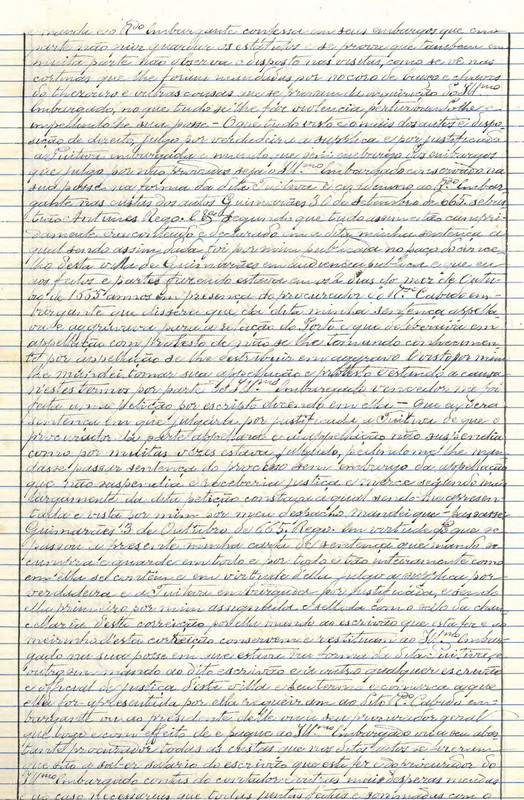 e manda e o Rdo Embargante confessa em seus embargos que em
parte não quer guardar os estatutos e se prova que tambem em
muita parte não observa o disposto nas visitas, como se vê nas
que lhe foram mandadas por no coro de
do thezoireiro e outras cousas que se do Illmo
Embargado, no que tudo se lhe fez violencia perturbando-lhe e
impedindo lhe sua posse O que tudo visto e o mais dos autos e dispo
sição de direito, julgo por verdadeira a suplica e por justificada
a Tuitiva embargada e mando que sem embargo dos embargos
que julgo por não provados seja o Illmo Embargado conservado na
sua posse na forma da dita Tuitiva e condemno ao Rdo Embar
gante nas custas dos autos Guimarães 30 de setembro de 665. sebas
tião Antunes Rego. E segundo que tudo assim e tão cumpri
damente era conteudo e declarado em a dita minha sentença a
qual sendo assim dada foi por mim publicada no paço do conce
lho desta villa de Guimarães em audiencia publica que eu
aos feitos e partes fazendo estava em os 2 dias do mez de Outu
bro de 1665 annos em presença do procurador do Rdo Cabido em
bargante que dissera que da dita minha sentença appella
va e aggravava para a relação do Porto e que o
appellação com protesto de não se lhe tomando conhecimen
to por appellação se lhe em aggravo. E visto por mim
lhe mandei tomar sua appellação e protesto estando a causa
nestes termos por parte do Illmo Embargado vencedor me foi
feita uma petição por escripto dizendo em ella = Que eu dera
sentença em que julgára por justificada a Tuitiva de que o
procurador da parte appellara e a appellação não suspendia
como por muitas vezes estava julgado, pedindo me lhe man
dasse passar sentença do processo sem embargo da appellação
que não suspendia e receberia justiça e merce segundo mais
largamente da dita petição constava a qual sendo me apresen
tada e vista por mim por meu despacho mandei que = Se passe
Guimarães 3 de Outubro de 665. Rego. Em virtude do que se
passou a presente minha carta de sentença que mando se
cumpra e guarde em todo e por todo e tão inteiramente como
em ella se contem e em virtude della julgo a suplica por
verdadeira e a Tuitiva embargada por justificada, e sendo
ella primeiro por mim assignada e sellada com o sello da chan
cellaria desta correição por ella mando ao escrivão que esta fez e ao
meirinho desta correição conservem e restituam ao Illmo Embar
gado na sua posse em que estava na forma da dita Tuitiva, e
outrosim mando ao dito escrivão e a outro qualquer escrivão
e official de justiça desta villa e seu termo e comarca a que
ella for apresentada por ella requeiram ao dito Rdo Cabido em
bargante ou ao presidente delle ou a seu procurador geral
que logo e com effeito dê e pague ao Illmo Embargado ou a seu abas
tante procurador todas as custas que nos ditos autos se fizeram
que são a saber salario do escrivão que esta fez do procurador do
Illmo Embargado contas do contador e vistas mais despezas
ao caso necessarias que todas juntas feitas e sommadas com o